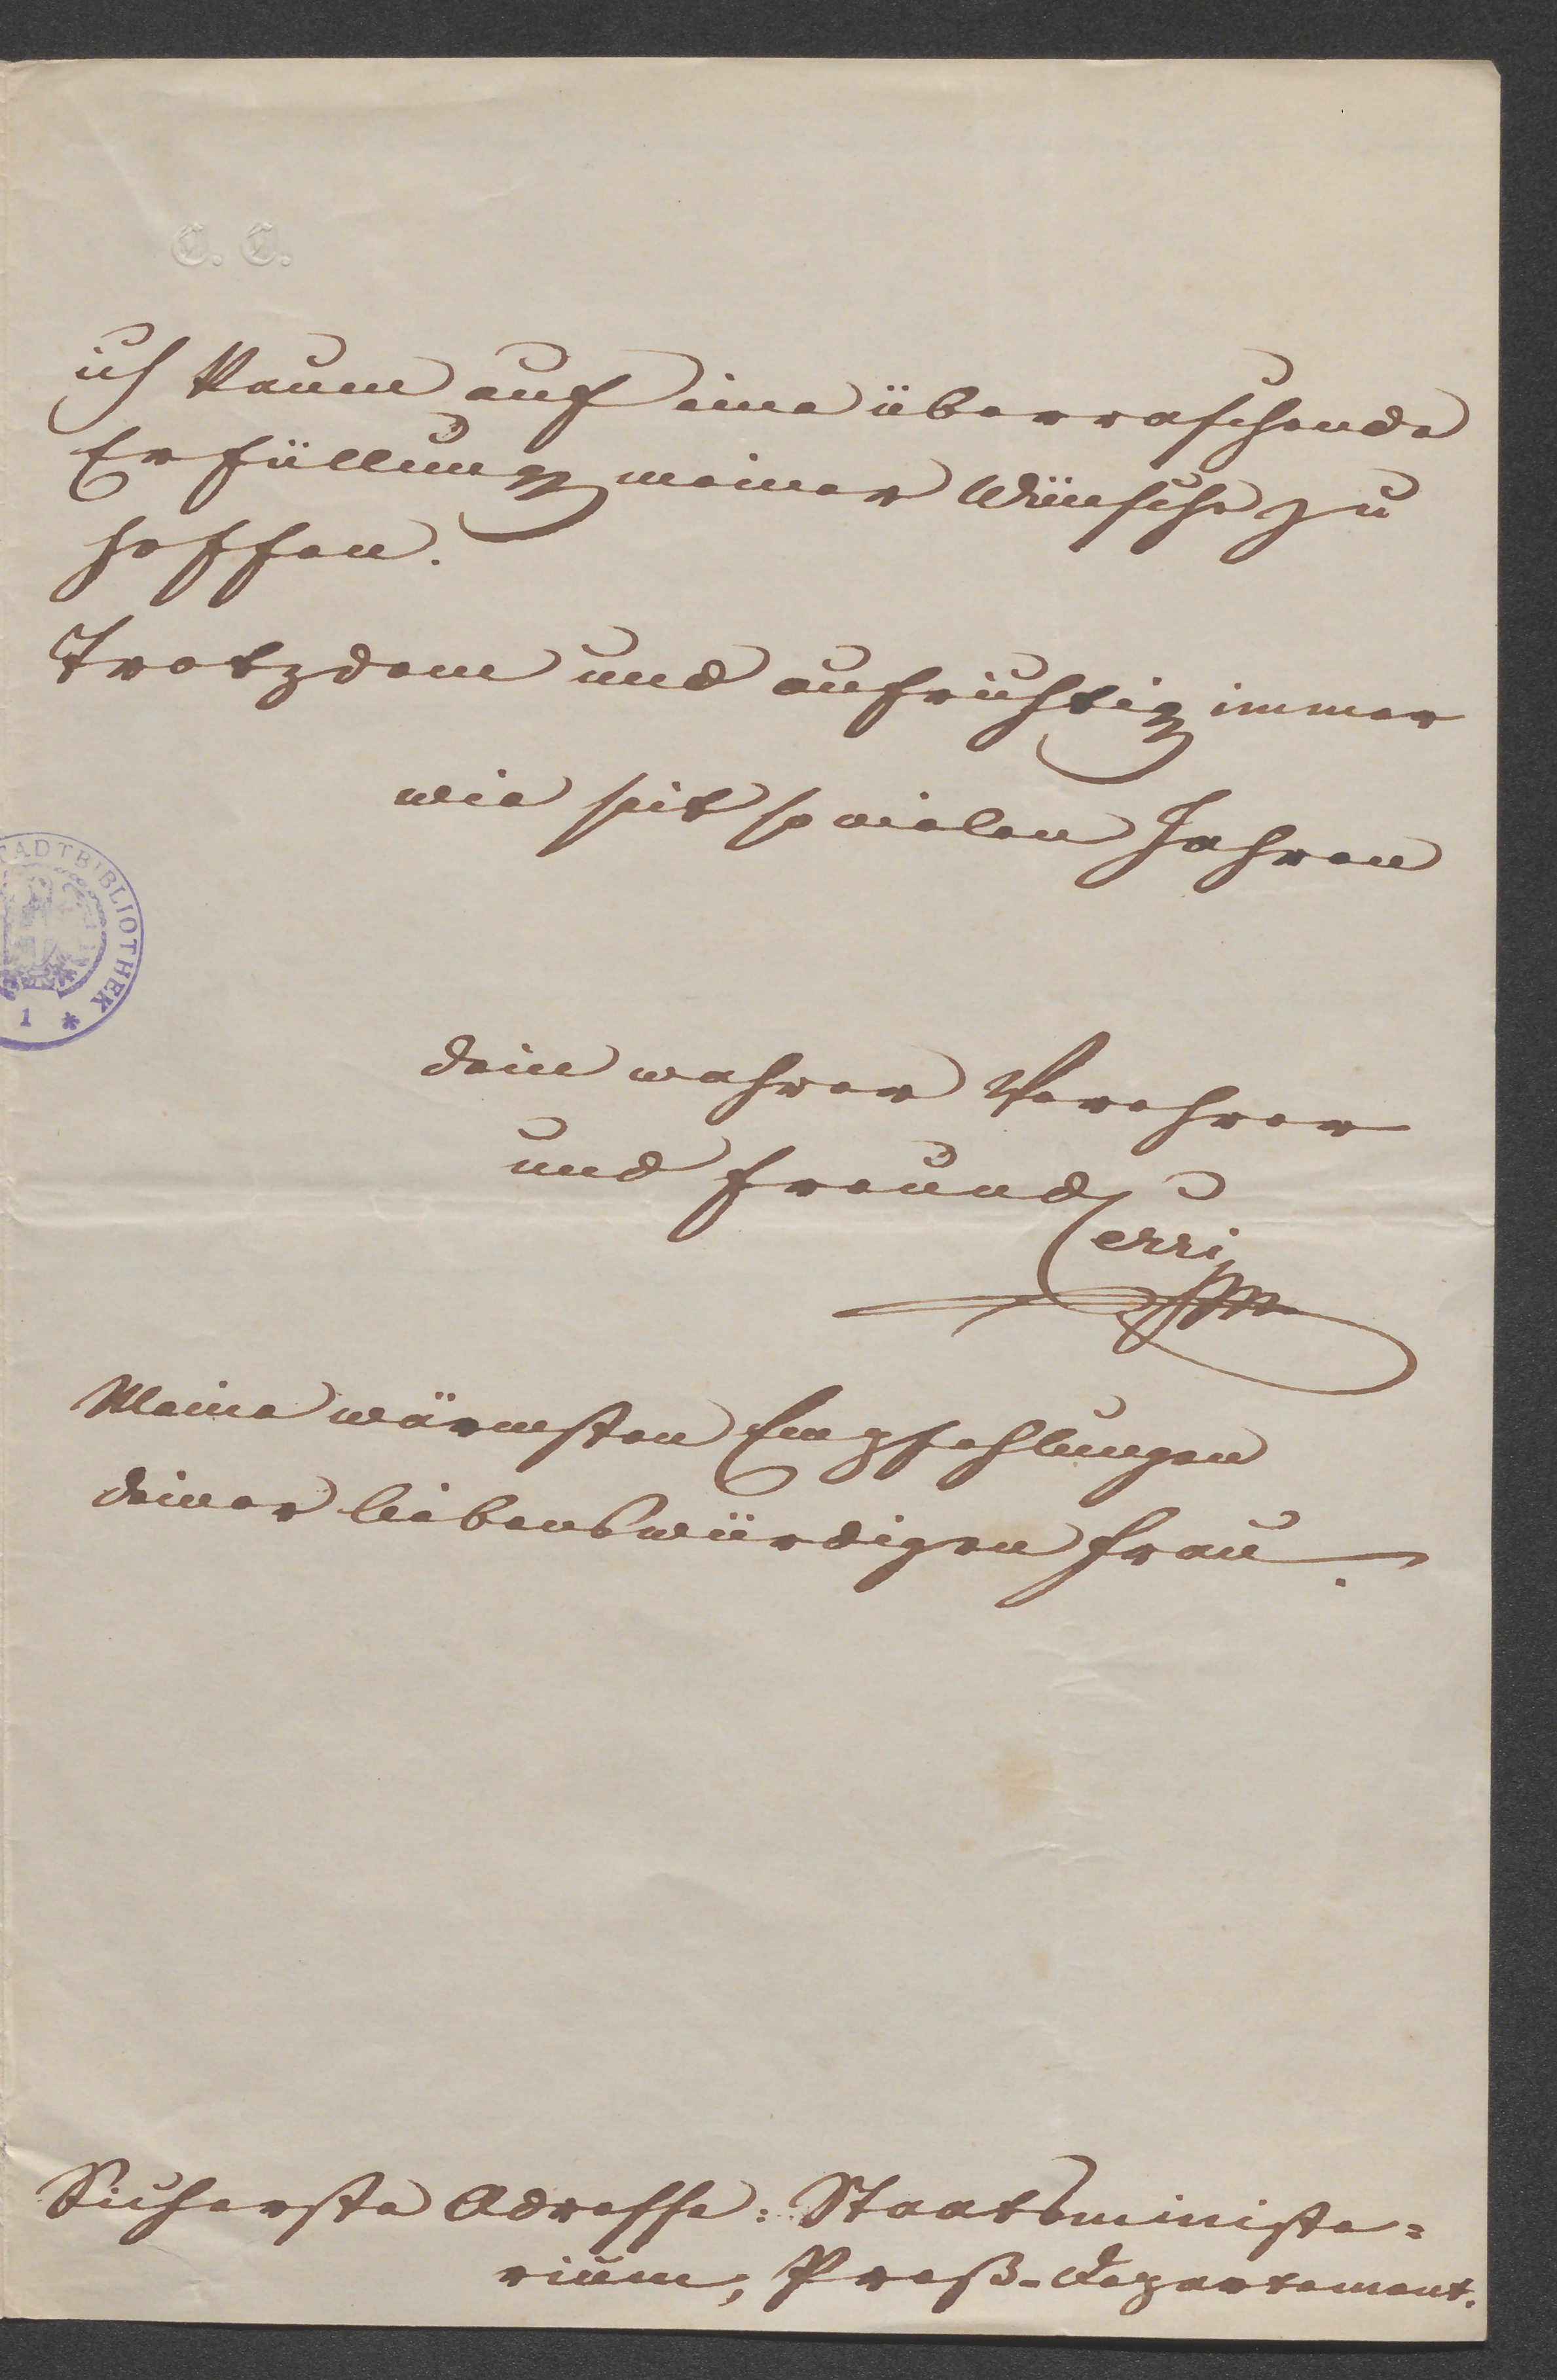 C. C.
ich kaum auf eine überraschende
Erfüllung meiner Wünsche zu
hoffen.
Trotzdem und aufrichtig immer
wie seit so vielen Jahren
STADTBIBLIOTHEK
1 *
dein wahrer Verehrer
und Freund
Cerri
Meine wärmsten Empfehlungen
deiner liebenswürdigen Frau.
Sicherste Adresse: Staatsministe=
rium, Preß-Departement.